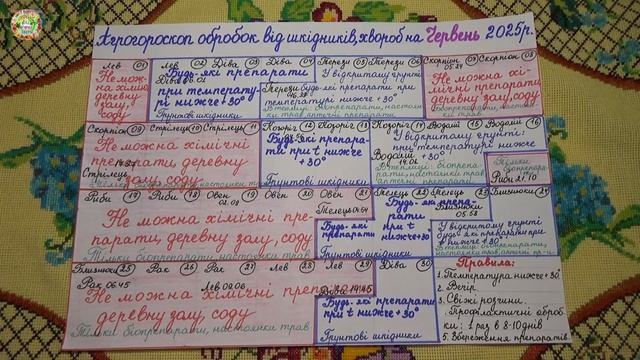 Агрогороскоп обробок від шкідників, хвороб на Червень 2025р.
Лев 01 Лев 02 Діва 03 Діва 04 Терези 05 Терези 06 Скорпіон 07 Скорпіон 08
Не можна хімію деревну золу, соду
Будь-які препарати при температурі нижче +30°
Ґрунтові шкідники
Терези
будь-які препарати при температурі нижче +30
У відкритому ґрунті
В теплиці: біопрепарати, настоянки трав, аптечні препарати
Не можна хімічні препарати, деревну золу, соду
Скорпіон 09 Стрілець 10 Стрілець 11 Козоріг 12 Козоріг 13 Козоріг 14 Водолій 15 Водолій 16
Не можна хімічні препарати, деревну золу, соду
Стрілець
Тільки біопрепарати, настоянки трав
Будь-які препарати при t нижче +30°
Ґрунтові шкідники
Водолій
У відкритому ґрунті: при температурі нижче +30°
В теплиці: біопрепарати, настоянки трав, аптечні препарати
Тільки біопрепарати
Риби
Риби 17 Риби 18 Овен 19 Овен 20 Овен 21 Телець 22 Телець 23 Близнюки 24
Не можна хімічні препарати, деревну золу, соду
Тільки біопрепарати, настоянки трав
Телець
Будь-які препарати
Ґрунтові шкідники
Будь-які препарати при t нижче +30
Близнюки
05.58
У відкритому ґрунті будь-які препарати при t нижче +30
В теплиці: біопрепарати, настоянки трав, аптечні пр-ти
Близнюки 25 Рак 26 Рак 27 Лев 28 Лев 29 Діва 30
Рак 06.45
Лев 09.06
Не можна хімічні препарати, деревну золу, соду
Тільки біопрепарати, настоянки трав
Будь-які препарати при t нижче +30°
Ґрунтові шкідники
Правила:
1. Температура нижче +30°
2. Вечір.
3. Свіжі розчини.
Профілактичні обробки: 1 раз в 8-10 днів
5. Збереження препаратів